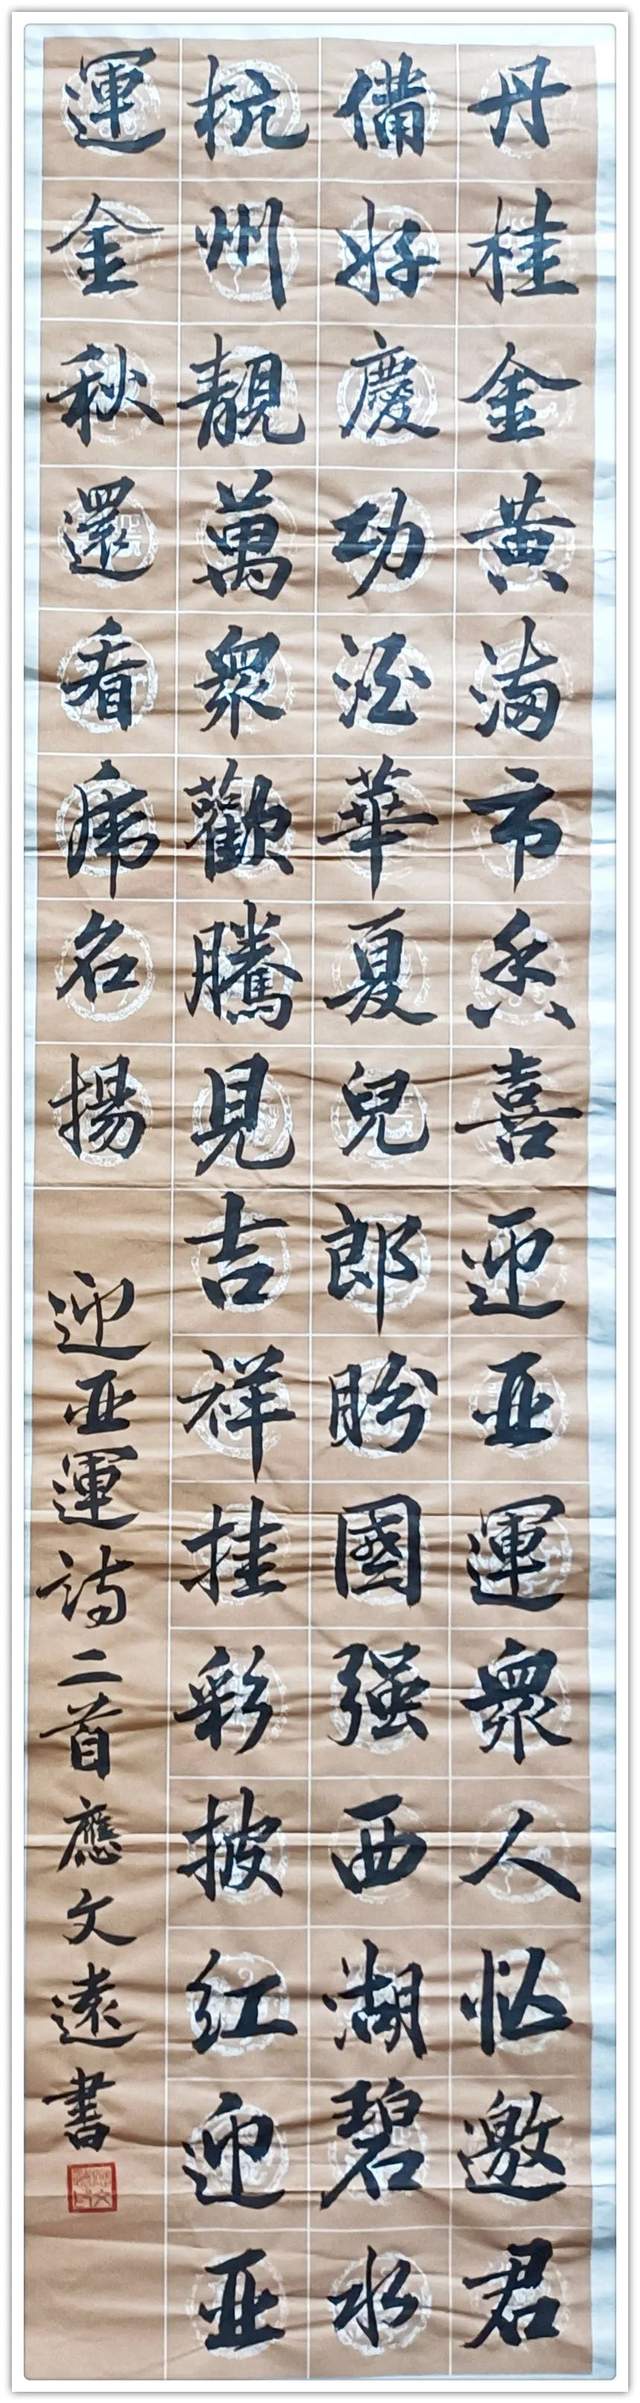 丹桂金黄滿市香喜迎亚運衆人忙邀君
備好慶功酒華夏兒郎盼國强西湖碧水
杭州靚萬衆歡騰見吉祥挂彩披红迎亚
運金秋還看名揚
迎亚運詩二首應文遠書